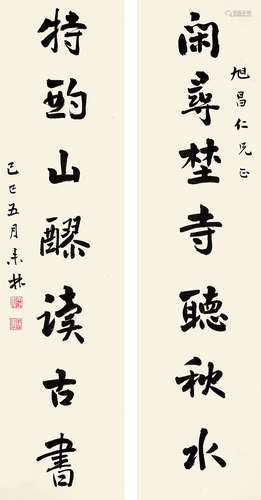 旭昌仁兄正
閑尋埜寺聽秋水
特酌山醪读古書
己巳五月